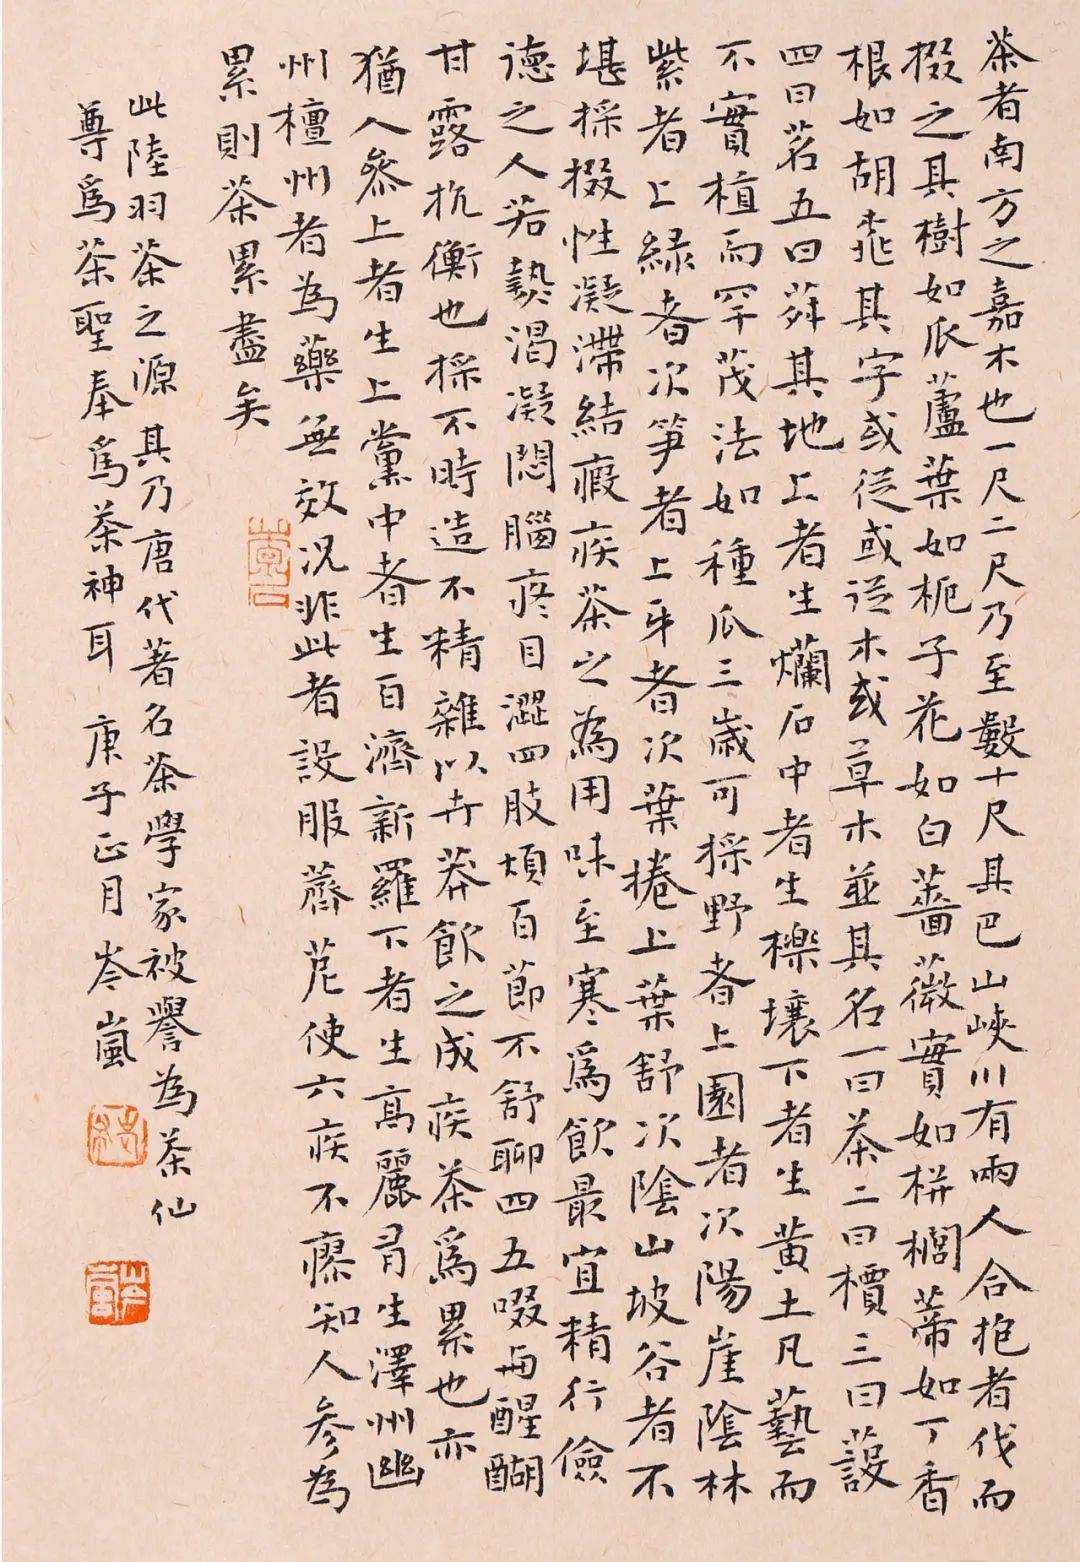 茶者南方之嘉木也一尺二尺乃至數十尺其巴山峽川有兩人合抱者伐而
掇之其樹如瓜蘆葉如枙子花如白薔薇實如栟櫚蒂如丁香
根如胡桃其字或從或從木或草木並其名一曰茶二曰檟三曰蔎
四曰茗五曰荈其地上者生爛石中者生櫟壤下者生黄土凡藝而
不實植而罕茂法如種瓜三歲可採野者上園者次陽崖陰林
紫者上緑者次笋者上牙者次葉捲上葉舒次陰山坡谷者不
堪採掇性凝滯結瘕疾茶之為用味至寒爲飲最宜精行儉
德之人若熱渴凝悶腦疼目澀四肢煩百節不舒聊四五啜与醍醐
甘露抗衡也採不時造不精雜以卉莽飲之成疾茶爲累也亦
猶人參上者生上黨中者生百濟新羅下者生高麗有生澤州幽
州檀州者為藥無效況非此者設服薺苨使六疾不瘳知人參為
累則茶累盡矣
此陸羽茶之源其乃唐代著名茶學家被譽為茶仙
尊爲茶聖奉爲茶神耳 庚子正月岑嵐